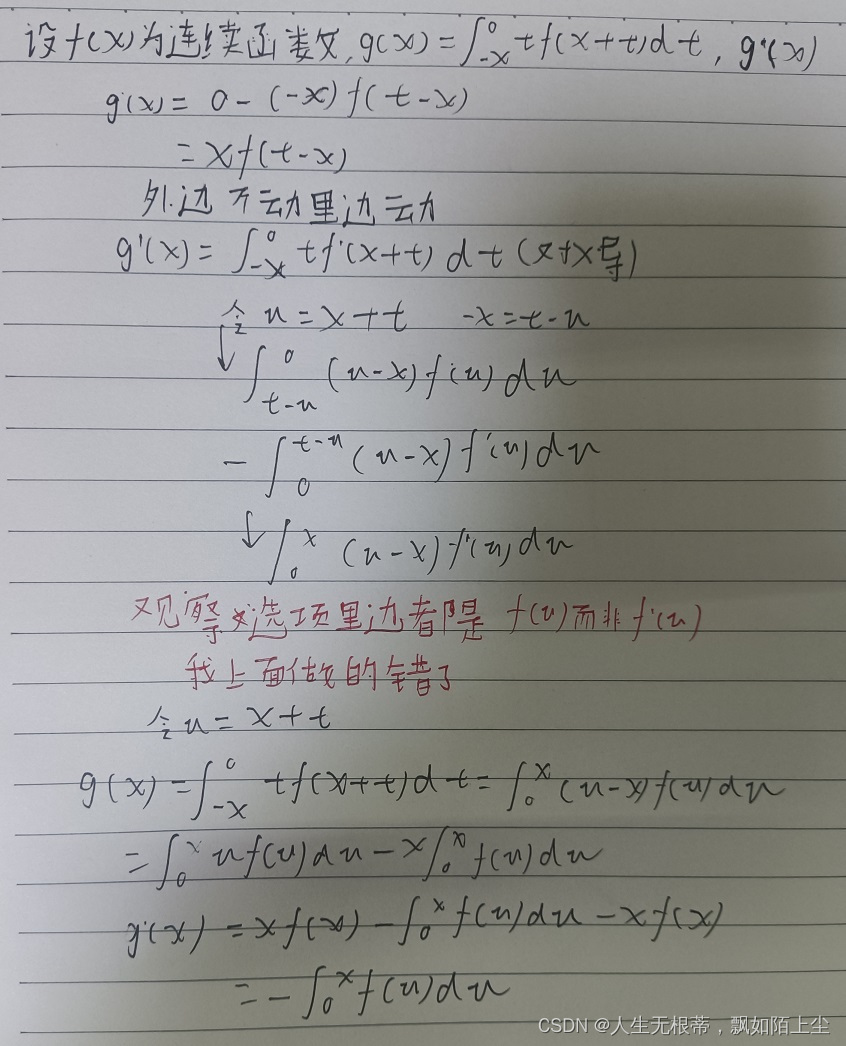 设f(x)为连续函数,g(x)=∫_{-x}^{0} tf(x+t)dt, g'(x)
g'(x) = 0-(-x)f(t-x)
= xf(t-x)
外边不动里边动
g'(x) = ∫_{-x}^{0} tf'(x+t)dt (对x导)
令 u=x+t -x=t-u
↓ ∫_{t-u}^{0} (u-x)f'(u)du
- ∫_{0}^{t-u} (u-x)f'(u)du
↓ ∫_{0}^{x} (u-x)f'(u)du
观察选项里边都是 f(u)而非f'(u)
我上面做的错了
令u=x+t
g(x)=∫_{-x}^{0} tf(x+t)dt=∫_{0}^{x} (u-x)f(u)du
=∫_{0}^{x} uf(u)du-x∫_{0}^{x} f(u)du
g'(x) = xf(x)-∫_{0}^{x} f(u)du-xf(x)
=-∫_{0}^{x} f(u)du
CSDN @人生无根蒂，飘如陌上尘